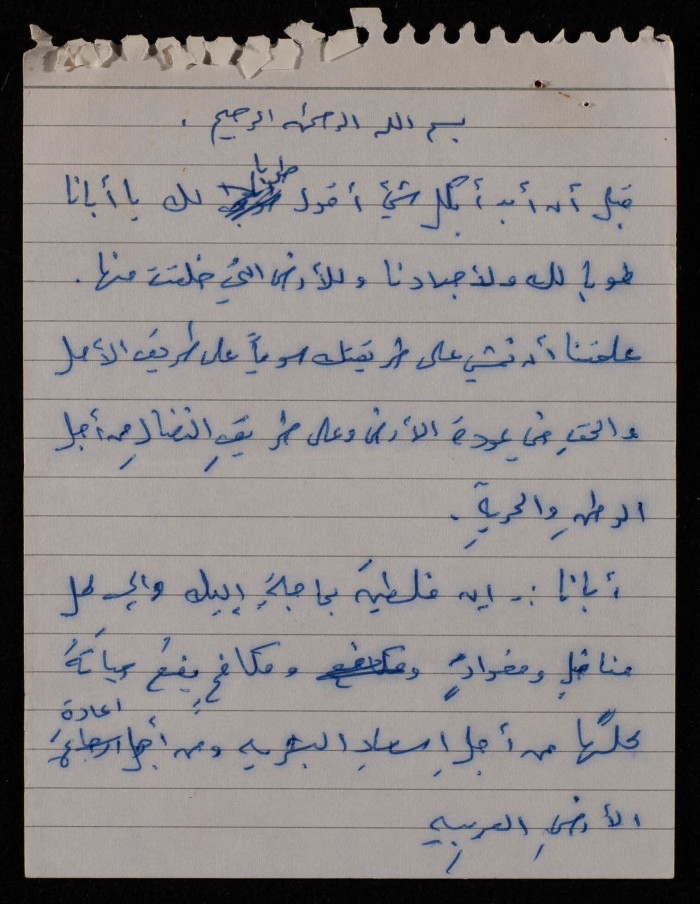 بسم الله الرحمن الرحيم .
قبل أن أبدأ بكل شيء أقول طوبا لك يا أبانا
طوبا لك ولأجدادنا وللأرض التي خلقت منها .
علمتنا أن نمشي على طريقتك سوياً على طريق الأمل
والحق في عودة الأرض وعلى طريقِ النضالِ من أجل
الوطنِ والحريةِ .
أبانا :- إن فلسطين بحاجةٍ إليك وإلى كل
مناضلٍ ومغوارٍ ومكافحٍ يضعُ حياتَهُ
كلَّها من أجلِ إسعادِ البشريه ومن أجل اعادة
الأرضِ العربيهِ